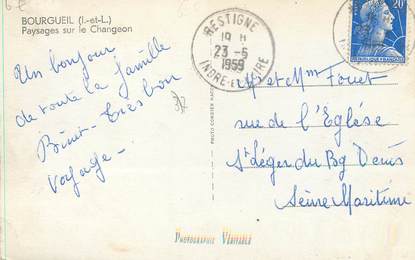 6€
BOURGUEIL (I.-et-L.)
Paysages sur le Changeon
Un bonjour
de toute la famille
Binet - très bon
voyage -
RESTIGNE
19 H
23-5
1959
INDRE-ET-LOIRE
20F
Mr et Mme Fouet
rue de l'Eglése
St Léger du Bg Denis
Seine Maritime
PHOTOGRAPHIE VÉRITABLE